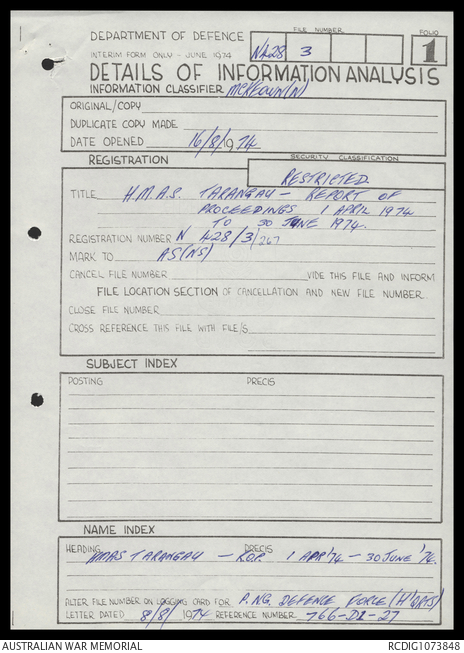 DEPARTMENT OF DEFENCE
FILE NUMBER
FOLIO
INTERIM FORM ONLY - JUNE 1974
N428 3
1
DETAILS OF INFORMATION ANALYSIS
INFORMATION CLASSIFIER McKEOWN(N)
ORIGINAL/COPY
DUPLICATE COPY MADE
DATE OPENED 16/8/1974
REGISTRATION
SECURITY CLASSIFICATION
RESTRICTED
TITLE H.M.A.S. TARANGAU - REPORT OF
PROCEEDINGS 1 APRIL 1974
TO 30 JUNE 1974.
REGISTRATION NUMBER N 428/3/267
MARK TO AS(NS)
CANCEL FILE NUMBER VIDE THIS FILE AND INFORM
FILE LOCATION SECTION OF CANCELLATION AND NEW FILE NUMBER
CLOSE FILE NUMBER
CROSS REFERENCE THIS FILE WITH FILE/S
SUBJECT INDEX
POSTING PRECIS
NAME INDEX
HEADING PRECIS
HMAS TARANGAU - R.O.P. 1 APR '74 - 30 JUNE '74.
ALTER FILE NUMBER ON LOGGING CARD FOR P.NG. DEFENCE FORCE (H'QRTS)
LETTER DATED 8/8/1974 REFERENCE NUMBER 766-D1-27
AUSTRALIAN WAR MEMORIAL
RCDIG1073848